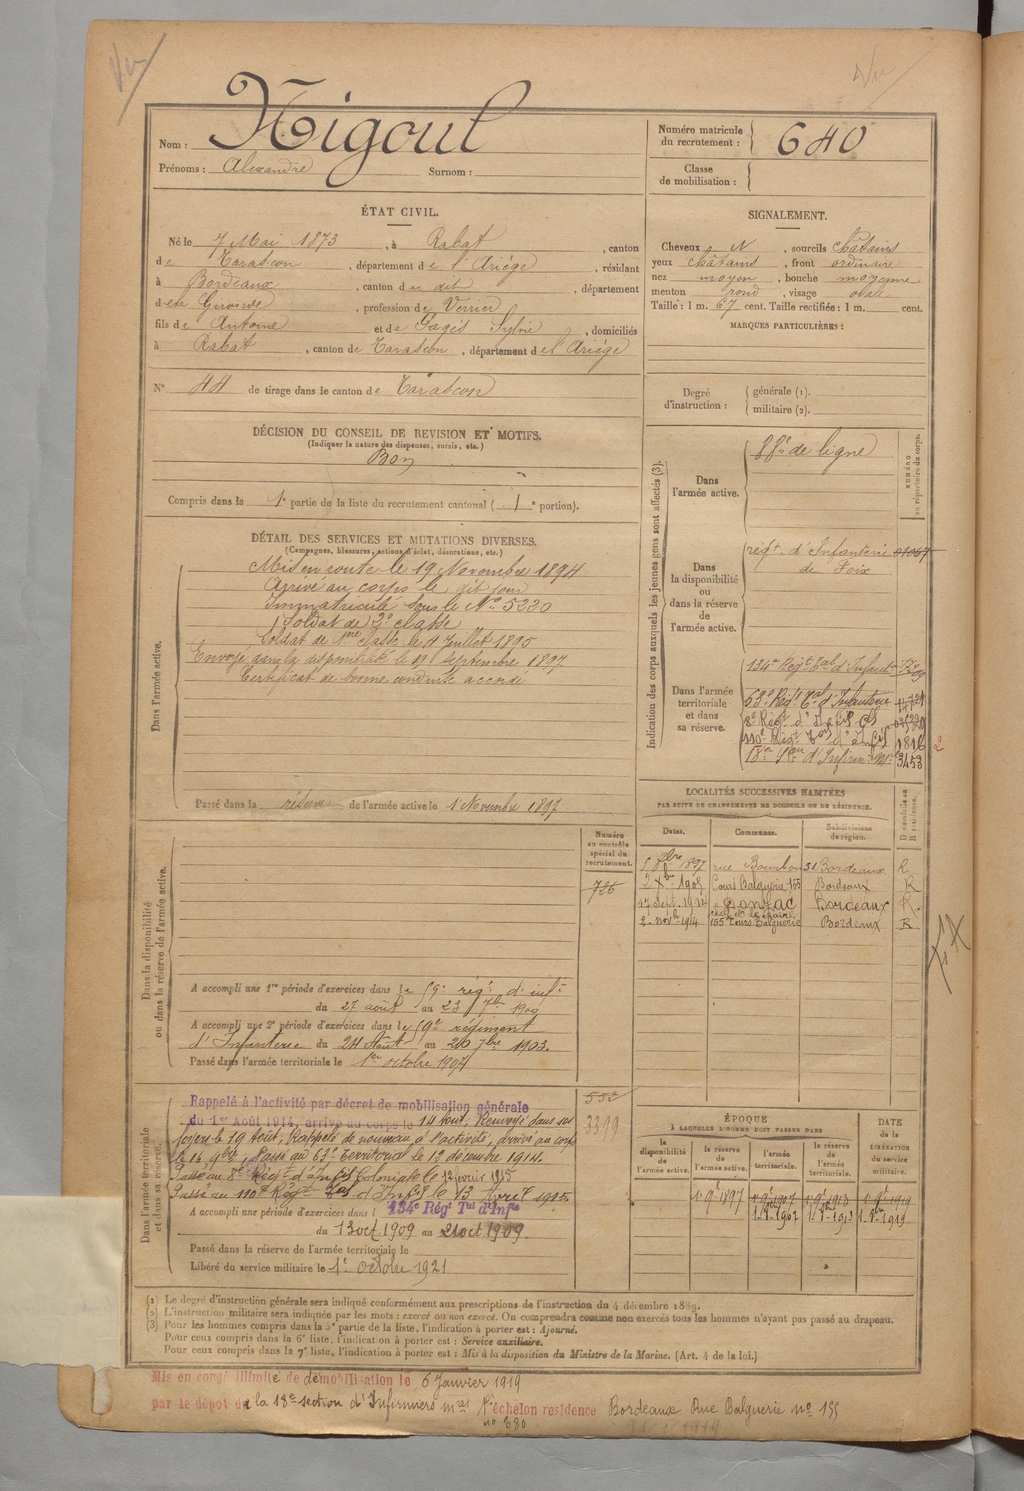 Vu
Vu
Nom : Nigoul
Prénoms : Alexandre Surnom :
Numéro matricule du recrutement : 640
Classe de mobilisation :
ÉTAT CIVIL.
Né le 7 Mai 1873, à Rabat, canton
de Tarascon, département de l'Ariège, résidant
à Bordeaux, canton du dit, département
de la Gironde, profession de Verrier
fils de Antoine et de Gagés Sylvie, domiciliés
à Rabat, canton de Tarascon, département de l'Ariège
N° 44 de tirage dans le canton de Tarascon
SIGNALEMENT.
Cheveux N, sourcils châtains
yeux châtains, front ordinaire
nez moyen, bouche moyenne
menton rond, visage ovale
Taille : 1 m. 67 cent. Taille rectifiée : 1 m. cent.
MARQUES PARTICULIÈRES :
Degré d'instruction : générale (1).
militaire (2).
DÉCISION DU CONSEIL DE REVISION ET MOTIFS.
(Indiquer la nature des dispenses, sursis, etc.)
Bon
Compris dans la 1e partie de la liste du recrutement cantonal ( 1e portion).
DÉTAIL DES SERVICES ET MUTATIONS DIVERSES.
(Campagnes, blessures, actions d'éclat, décorations, etc.)
Dans l'armée active.
Mis en route le 19 Novembre 1894
Arrivé au corps le dit jour
Immatriculé sous le No 5220
Soldat de 2e classe
Soldat de 1ère classe le 4 Juillet 1895
Envoyé dans la disponibilité le 19 Septembre 1897
Certificat de bonne conduite accordé
Passé dans la réserve de l'armée active le 1er Novembre 1897
Indication des corps auxquels les jeunes gens sont affectés (3).
NUMÉRO au répertoire du corps.
Dans l'armée active.
88e de ligne
Dans la disponibilité ou dans la réserve de l'armée active.
régt. d'Infanterie 01067
de Foix
Dans l'armée territoriale et dans sa réserve.
134e Régt Tal d'Infant
63e Régt Tal d'Infanterie
8e Régt d'Infie Cle
110e Régt Tal d'Infie 1816
18e Son d'Infirm. Mil. 3453
2
LOCALITÉS SUCCESSIVES HABITÉES
PAR SUITE DE CHANGEMENTS DE DOMICILE OU DE RÉSIDENCE.
Dates. Communes. Subdivisions de région. D domicile ou R résidence.
1 8bre 1897 rue Bourbon 31 Bordeaux R
2 Xbre 1905 Cours Balguerie 155 Bordeaux R
17 Sept. 1914 Bordeaux R.
2 novb 1914 155 Cours Balguerie Bordeaux R
Numéro au contrôle spécial du recrutement.
726
Dans la disponibilité ou dans la réserve de l'armée active.
A accompli une 1re période d'exercices dans le 59e rég. d'infie
du 27 août au 23 7b 1900
A accompli une 2e période d'exercices dans le 59e régiment
d'Infanterie du 24 Août au 20 7bre 1903.
Passé dans l'armée territoriale le 1er octobre 1907
Dans l'armée territoriale et dans sa réserve.
552
3399
Rappelé à l'activité par décret de mobilisation générale
du 1er Août 1914, arrivé au corps le 14 Aout, Renvoyé dans ses
foyers le 19 Aout, Rappelé de nouveau à l'activité, arrivé au corps
le 16 9bre, Passé au 63e Territorial le 12 décembre 1914.
Passé au 8e Régt d'Infie Coloniale le 12 février 1915
Passé au 110e Régt Tal d'Infie le 13 Avril 1915.
A accompli une période d'exercices dans l 134e Régt Tal d'Infie
du 13 oct 1909 au 21 oct 1909.
Passé dans la réserve de l'armée territoriale le
Libéré du service militaire le 1er octobre 1921
ÉPOQUE
A LAQUELLE L'HOMME DOIT PASSER DANS
la disponibilité de l'armée active. la réserve de l'armée active. l'armée territoriale. la réserve de l'armée territoriale. DATE de la LIBÉRATION du service militaire.
1 9e 1897 1 9e 1907 1 9e 1913 1 9e 1919
(1) Le degré d'instruction générale sera indiqué conformément aux prescriptions de l'instruction du 4 décembre 1889.
(2) L'instruction militaire sera indiquée par les mots : exercé ou non exercé. On comprendra comme non exercés tous les hommes n'ayant pas passé au drapeau.
(3) Pour les hommes compris dans la 5e partie de la liste, l'indication à porter est : Ajourné.
Pour ceux compris dans la 6e liste, l'indication à porter est : Service auxiliaire.
Pour ceux compris dans la 7e liste, l'indication à porter est : Mis à la disposition du Ministre de la Marine. (Art. 4 de la loi.)
Mis en congé illimité de démobilisation le 6 Janvier 1919
par le dépôt de la 18e section d'Infirmiers mres 1er échelon residence Bordeaux Rue Balguerie no 155
no 380